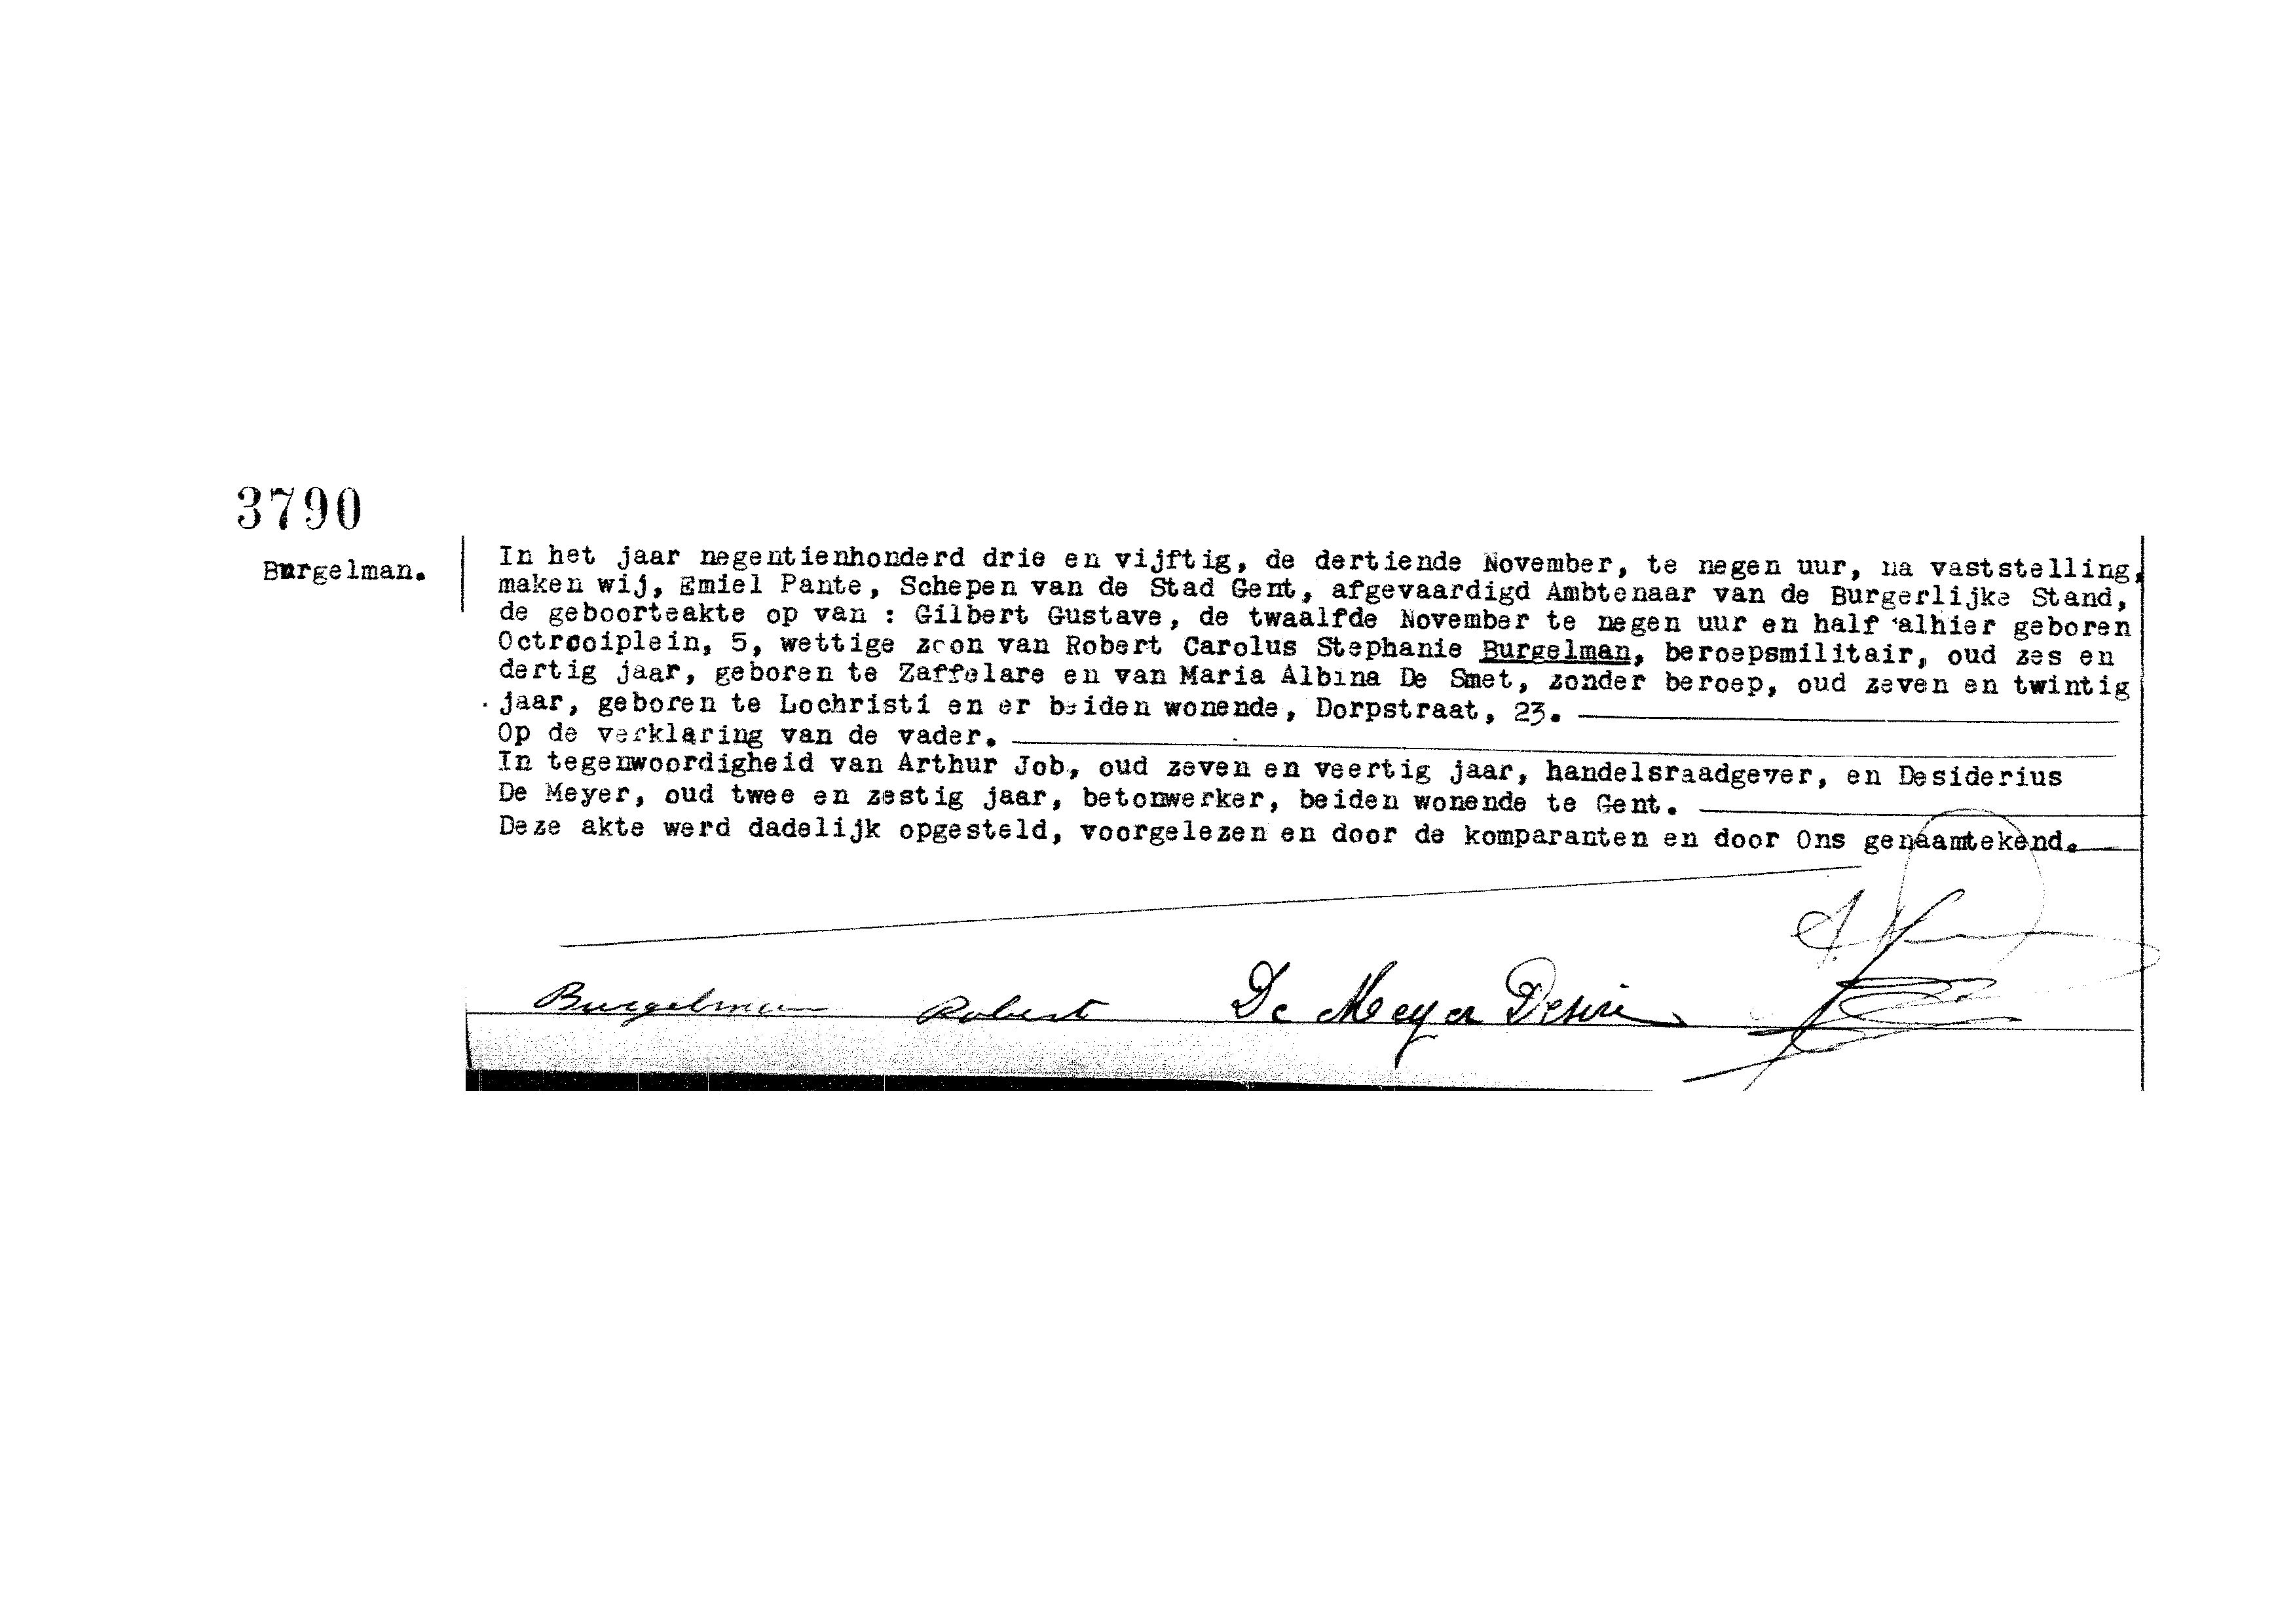 3790
Burgelman.
In het jaar negentienhonderd drie en vijftig, de dertiende November, te negen uur, na vaststelling,
maken wij, Emiel Pante, Schepen van de Stad Gent, afgevaardigd Ambtenaar van de Burgerlijke Stand,
de geboorteakte op van : Gilbert Gustave, de twaalfde November te negen uur en half alhier geboren
Octrooiplein, 5, wettige zoon van Robert Carolus Stephanie Burgelman, beroepsmilitair, oud zes en
dertig jaar, geboren te Zaffelare en van Maria Albina De Smet, zonder beroep, oud zeven en twintig
jaar, geboren te Lochristi en er beiden wonende, Dorpstraat, 23.
Op de verklaring van de vader.
In tegenwoordigheid van Arthur Job, oud zeven en veertig jaar, handelsraadgever, en Desiderius
De Meyer, oud twee en zestig jaar, betonwerker, beiden wonende te Gent.
Deze akte werd dadelijk opgesteld, voorgelezen en door de komparanten en door Ons genaamtekend.
Burgelman Robert De Meyer Desiré